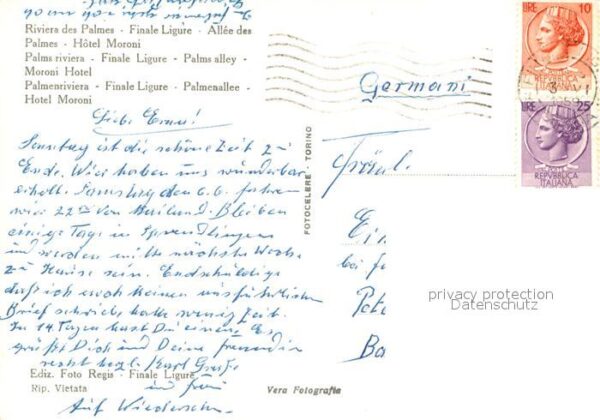 Riviera des Palmes - Finale Ligure - Allée des
Palmes - Hôtel Moroni
Palms riviera - Finale Ligure - Palms alley -
Moroni Hotel
Palmenriviera - Finale Ligure - Palmenallee -
Hotel Moroni
Liebe Erna!
Samstag ist die schöne Zeit zu
Ende. Wir haben uns wunderbar
erholt. Samstag den 6.6. fahren
wir 22 von Mailand. Bleiben
einige Tage in Sprendlingen
und werden mitte nächste Woche
zu Hause sein. Entschuldige
daß ich euch keinen ausführlichen
Brief schreibe habe wenig Zeit.
In 14 Tagen hast Du einen. Es
grüßt Dich und Deine freundin
recht herzl. Karl
und frau
Auf Wiedersehn
Ediz. Foto Regis - Finale Ligure
Rip. Vietata
Vera Fotografia
FOTOCELERE - TORINO
Germani
Fräul.
Ei
bei
Pete
Ba
privacy protection
Datenschutz
LIRE 10
REPVBBLICA
ITALIANA
LIRE 25
REPVBBLICA
ITALIANA